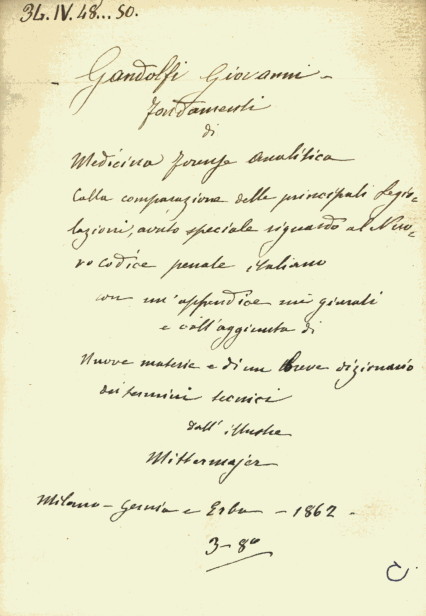 34. IV. 48...50.
Gandolfi Giovanni -
Fondamenti
di
Medicina Forense Analitica
Colla comparazione delle principali Legis-
lazioni, avuto speciale riguardo al Nuo-
vo codice penale italiano
con un'appendice sui giurati
e coll'aggiunta di
Nuove materie e di un breve dizionario
dei termini tecnici
dall' illustre
Mittermajer
Milano - e Erba - 1862 -
3 - 8º